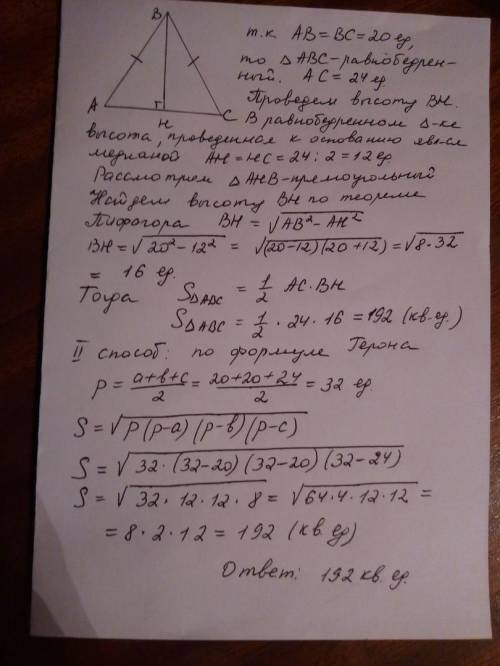 B
т.к. AB = BC = 20 ед,
то △ABC – равнобедрен-
ный. AC = 24 ед.
Проведем высоту BH.
A
H
C
В равнобедренном △-ке
высота, проведенная к основанию явл-ся
медианой AH = HC = 24 : 2 = 12 ед
Рассмотрим △AHB – прямоугольный
Найдем высоту BH по теореме
Пифагора BH = √(AB² – AH²)
BH = √(20² – 12²) = √((20–12)(20+12)) = √(8·32)
= 16 ед.
Тогда S△ABC = 1/2 AC·BH
S△ABC = 1/2 · 24 · 16 = 192 (кв.ед.)
II способ: по формуле Герона
P = (a+b+c)/2 = (20+20+24)/2 = 32 ед.
S = √(p(p–a)(p–b)(p–c))
S = √(32·(32–20)(32–20)(32–24))
S = √(32·12·12·8) = √(64·4·12·12) =
= 8·2·12 = 192 (кв.ед)
Ответ: 192 кв.ед.